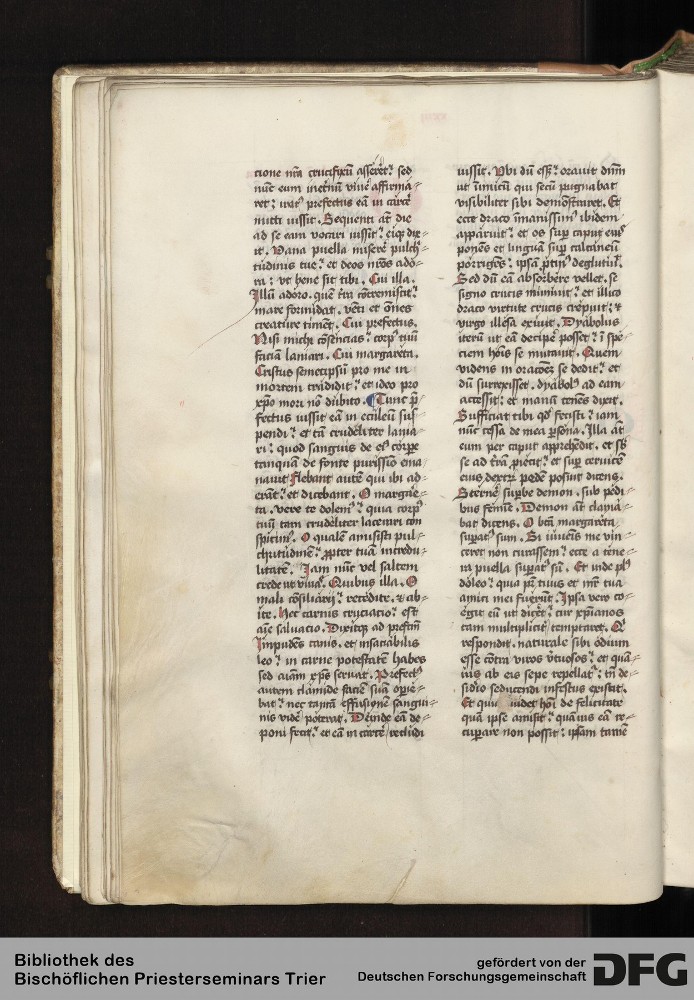 cione nr̃a crucifixũ asserẽt? sed
nũc eum in et̃nũ viuẽ affirma-
ret; irat9 prefectus eã in carcẽ
mitti iussit. Sequenti at̃ die
ad se eam vocari iussit? eiq; dix-
it. Vana puella miserẽ pulch-
tudinis tue? et deos nr̃os ado-
ra? vt bene sit tibi. Cui illa.
Illũ adoro. quẽ t̃ra cõtremiscit?
mare formidat. vẽti et õnes
creature timẽt. Cui prefectus.
Nisi michi cõsencias? corp9 tuũ
faciã laniari. Cui margareta.
Cristus semetipsũ pro me in
mortem tradidit? et ideo pro
xp̃o mori nõ dubito. Tunc p̃-
fectus iussit eã in eculeũ sus-
pendi? et tã crudeliter lania-
ri? quod sanguis de ei9 corpe
tanquã de fonte purissĩo ema-
nauit Flebant autẽ qui ibi ad-
erãt? et dicebant. O margare-
ta. vere te dolem9? quia corp9
tuũ tam crudeliter lacerari con
spicim9. O qualẽ amisisti pul-
chritudinẽ? ꝓpter tuã incredu-
litatẽ. Iam nũc vel saltem
crede ut viuas. Quibus illa. O
mali cõsiliarij? recedite. & ab-
ite. Hec carnis cruciatio? est
aĩe saluacio. Dixitq; ad prefctm̃
Impudẽs canis. et insaciabilis
leo? in carne potestatẽ habes
sed aĩam xp̃s seruat. Prefect9
autem clamide faciẽ suã operie-
bat? nec tantã effusionẽ sangui-
nis videẽ poterat. Deinde eã de-
poni fecit? et eã in carcẽ recludi
iussit. Vbi dũ ess̃? orauit dñm
ut inimicũ qui secũ pugnabat
visibiliter sibi demõstraret. Et
ecce draco inmanissim9 ibidem
apparuit? et os sup̃ caput ei9
ponẽs et linguã sup̃ calcaneũ
porrigẽs? ipsã ꝓtin9 deglutiuĩ.
Sed dũ eã absorbẽre vellet. se
signo crucis muniuit? et illico
draco virtute crucis crepuit? &
virgo illesa exiuit. Dyabolus
iterũ ut eã decipẽ posset? ĩ spe-
ciem hõis se mutauit. Quem
videns in oracõez se dedit? et
dũ surrexisset. dyabol9 ad eam
accessit? et manũ tenẽs dixit.
Sufficiat tibi qđ fecisti? iam
nũc cessa de mea p̃sona. Illa at̃
eum per caput apprehẽdit. et sb̃
se ad t̃rã ꝓiecit? et sup̃ ceruicẽ
eius dextrũ pedẽ posuit dicens.
Sternẽ supb̃e demon. sub pedi-
bus femĩe. Demon at̃ clama-
bat dicens. O bt̃ã margareta
supat9 sum. Si iuuẽis me vin-
ceret non curassem? ecce a tene-
ra puella supat9 sũ. Et inde pl9
doleo? quia pr̃ tuus et mr̃ tua
amici mei fuerũt. Ipsa vero co-
egit eũ ut dicẽt? cur xp̃ianos
tam multiplicit̃ temptaret. Q̃
respondit. naturale sibi odium
esse cõtra viros v̓tuosos? et quã-
uis ab eis sepe repellat̃? tñ de-
siderio seducendi infestus existit.
Et quia inuidet hõi de felicitate
quã ipse amisit? quãuis eã re-
cuperare non possit? ipsam tamẽ
Bibliothek des
Bischöflichen Priesterseminars Trier
gefördert von der
Deutschen Forschungsgemeinschaft
DFG